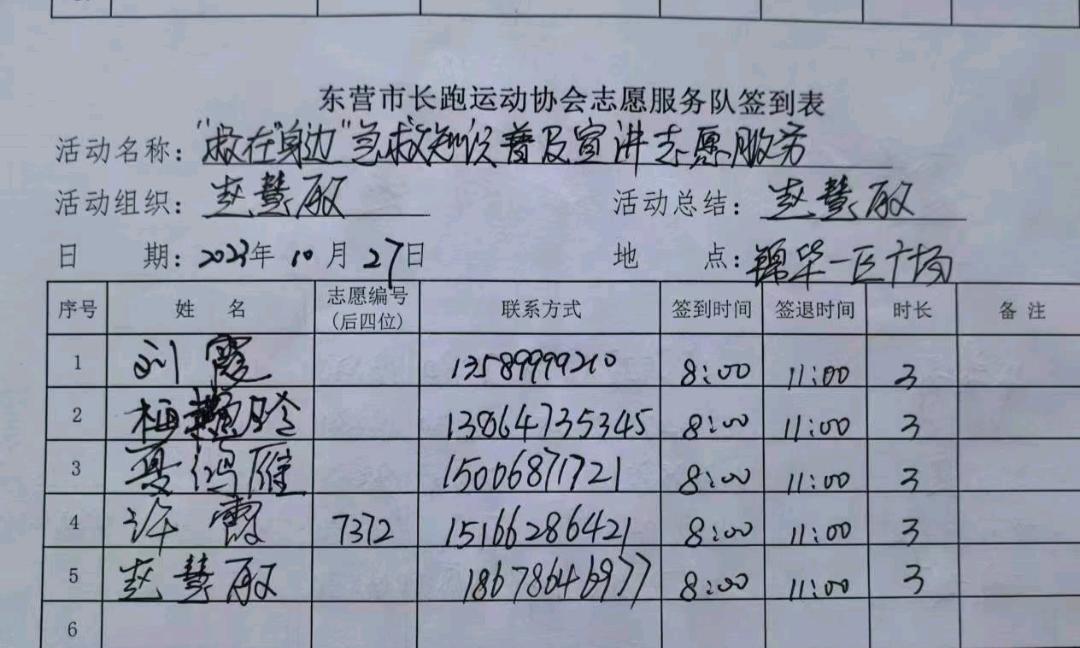 东营市长跑运动协会志愿服务队签到表
活动名称："救在"身边"急救知识普及宣讲志愿服务
活动组织：赵慧敏 活动总结：赵慧敏
日 期：2023年10月27日 地 点：锦华一区广场
序号 姓 名 志愿编号（后四位） 联系方式 签到时间 签退时间 时长 备注
1 刘霞 13589999210 8:00 11:00 3
2 13864735345 8:00 11:00 3
3 夏鸿雁 15006871721 8:00 11:00 3
4 许霞 7372 15166286421 8:00 11:00 3
5 赵慧敏 18678646977 8:00 11:00 3
6